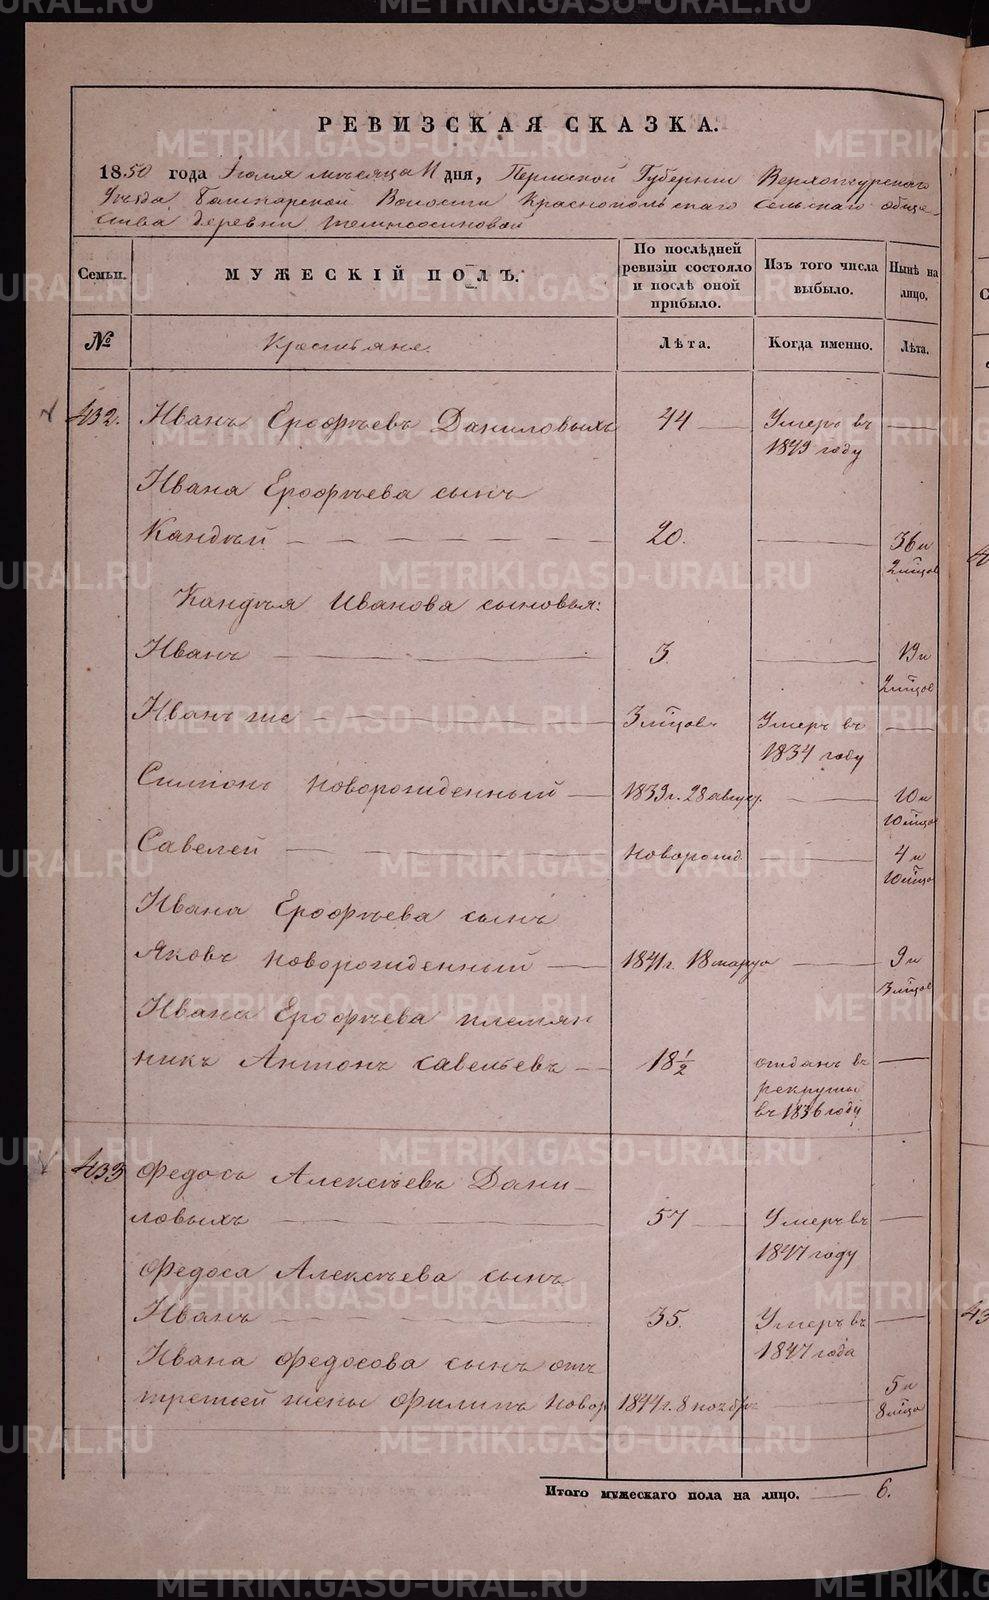 РЕВИЗСКАЯ СКАЗКА.
1850 года Іюля мѣсяца 11 дня, Пермской Губерніи Верхотурскаго
Уѣзда Башкарской Волости Краснопольскаго Сельскаго обще-
ства деревни
Семьи.
МУЖЕСКІЙ ПОЛЪ.
По послѣдней ревизіи состояло и послѣ оной прибыло.
Изъ того числа выбыло.
Нынѣ на лицо.
№
Крестьяне.
Лѣта.
Когда именно.
Лѣта.
432. Иванъ Ерофѣевъ Даниловыхъ 44 Умеръ въ
1849 году
Ивана Ерофѣева сынъ
Кандѣй 20. 36 и
2 мѣсцов
Кандѣя Иванова сыновья:
Иванъ 3. 19 и
2 мѣсцов
Иванъ же 3 мѣсцовъ Умеръ въ
1834 году
Симіонъ новорожденный 1839 г. 28 август. 10 и
10 мѣсцов
Савелей новорожд. 4 и
10 мѣсцо
Ивана Ерофѣева сынъ
Яковъ новорожденный 1841 г. 18 марта 9 и
3 мѣсцов
Ивана Ерофѣева племян
никъ Антонъ Савельевъ 18 1/2 отданъ въ
рекруты
въ 1836 году
433 Федосъ Алексѣевъ Дани-
ловыхъ 57 Умеръ въ
1847 году
Федоса Алексѣева сынъ
Иванъ 35. Умеръ въ
1847 года
Ивана Федосова сынъ отъ
третьей жены Филипъ новор 1844 г. 8 ноябръ 5 и
8 мѣсцо
Итого мужескаго пола на лицо. 6.
METRIKI.GASO-URAL.RU